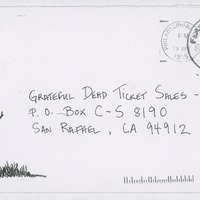 PHILADELPHIA
PM
GRATEFUL DEAD TICKET SALES -
P. O. BOX C-S 8190
SAN RAFAEL, CA 94912